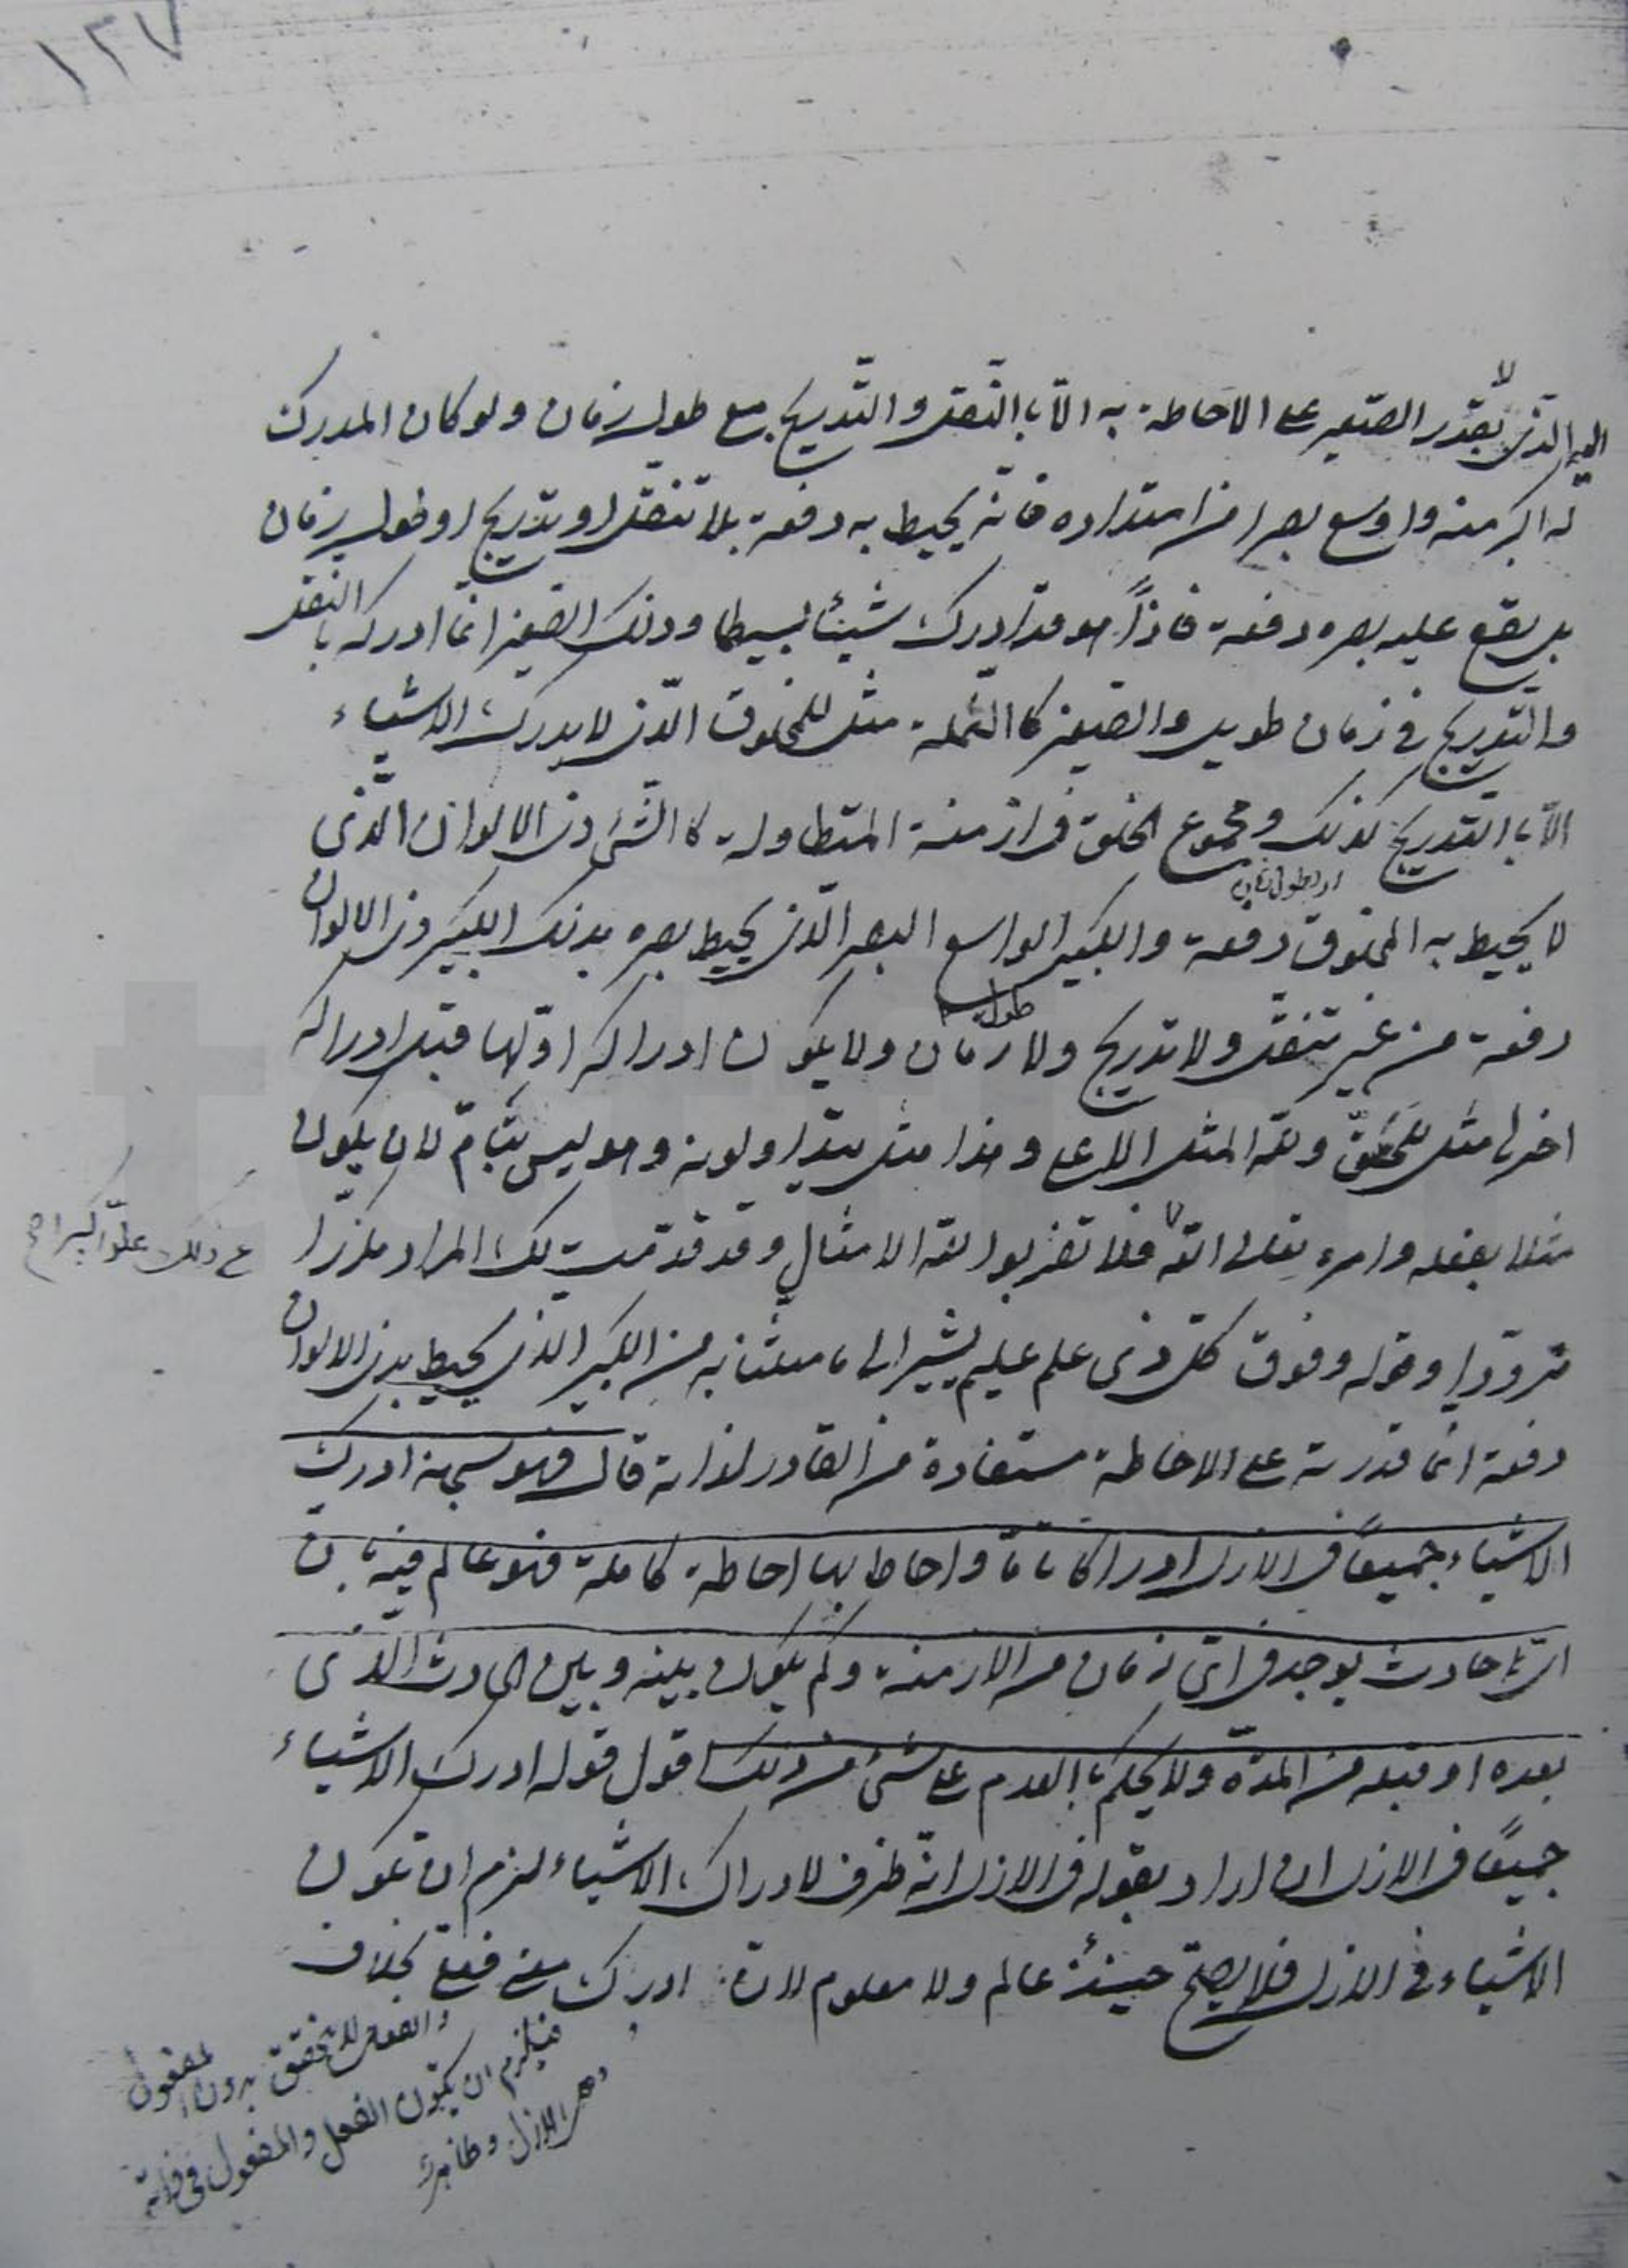 ١٢٧
الذی لا یقدر الصغیر علی الاحاطة به الّا باالتنقل والتّدریج مع طول زمان ولو کان المدرک
له اکبر منه واوسع بصرا من امتداده فانّه یحیط به دفعة بلا تنقّل او تدریج او طول زمان
بل یقع علیه بصره دفعة فاذاً هو قد ادرک شیئا بسیطا وذلک الصغیر انّما ادرکه باالتنقل
والتّدریج فی زمان طویل والصغیر کاالنّملة مثل للمخلوق الّذی لا یدرک الاشیاء
الّا باالتدریج کذلک ومجموع الخلق فی ازمنة المتطاولة کاالشئ ذی الالوان الّذی
لا یحیط به المخلوق دفعة او بطول زمان والکبیر الواسع البصر الّذی یحیط بصره بذلک الکبیر ذی الالوان
دفعة من غیر تنقّل ولا تدریج ولا طول زمان ولا یکون ادراکه اوّلها قبل ادراکه
اخرها مثل للحقّ ولله المثل الاعلی وهذا مثل مبتدا ولونه وهو لیس بتامّ لان یکون
مثلا بفعله وامره تعالی الله فلا تضربوا لله الامثال وقد قدّمت لک المراد مکرّرا
عن ذلک علوّا کبیرا صح
مردّدا وقوله وفوق کلّ ذی علم علیم یشیر الی ما مثلنا به من الکبیر الذی یحیط بذی الالوان
دفعة انّما قدرته علی الاحاطة مستفادة من القادر لذاته قال فهو سبحانه ادرک
الاشیاء جمیعاً فی الازل ادراکا تامّا واحاط بها احاطة کاملة فهو عالم فیه بان
ایّ حادث یوجد فی ایّ زمان من الازمنة وکم یکون بینه وبین الحادث الّذی
بعده او قبله من المدّة ولا یحکم باالعدم علی شئ من ذلک اقول قوله ادرک الاشیاء
جمیعاً فی الازل ان اراد بقوله فی الازل انّه ظرف لادراک الاشیاء لزم ان تکون
الاشیاء فی الازل فلا یصحّ حینئذ عالم ولا معلوم لانّ ادرک معنی فعلی بخلاف
والفعل لا یتحقق بدون المفعول
فیلزم ان یکون الفعل والمفعول فی ذاته
وهی الازل وظاهره